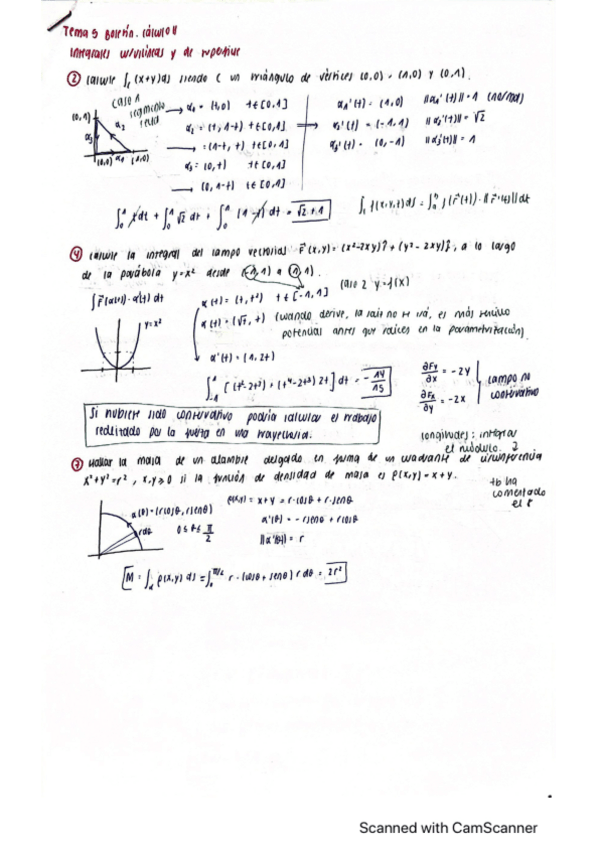 Tema 5 Boletín. Cálculo II
Integrales curvilíneas y de superficie
② Calcule ∫c (x+y)ds siendo C un triángulo de vértices (0,0), (1,0) y (0,1).
caso 1
segmento
recta
(0,1)
α3
α2
(0,0) α1 (1,0)
α1 = (t,0) t∈[0,1]
α2 = (t, 1-t) t∈[0,1]
= (1-t, t) t∈[0,1]
α3 = (0,t) t∈[0,1]
(0, 1-t) t∈[0,1]
α1'(t) = (1,0) ||α1'(t)|| = 1
α2'(t) = (-1,1) ||α2'(t)|| = √2
α3'(t) = (0,-1) ||α3'(t)|| = 1
∫₀¹ t dt + ∫₀¹ √2 dt + ∫₀¹ (1-t) dt = √2 + 1
④ Calcule la integral del campo vectorial F(x,y) = (x²-2xy)î + (y²-2xy)ĵ, a lo largo
de la parábola y=x² desde (-1,1) a (1,1).
caso 2 y=f(x)
∫F(α(t))·α'(t) dt
α(t) = (t, t²) t∈[-1,1]
y=x²
α(t) = (√t, t) (cuando derive, la raíz no se irá, es más sencillo
potencias antes que raíces en la parametrización).
α'(t) = (1, 2t)
∫₋₁¹ [(t²-2t³) + (t⁴-2t³) 2t] dt = -14/15
∂Fy/∂x = -2y
∂Fx/∂y = -2x
campo no
conservativo
Si hubiese sido conservativo podría calcular el trabajo
realizado por la fuerza en una trayectoria.
longitudes: integrar
el módulo.
⑦ Hallar la masa de un alambre delgado en forma de un cuadrante de circunferencia
x²+y²=r², x,y≥0 si la función de densidad de masa es ρ(x,y) = x+y.
tb ha
comentado
el r
α(θ) = (rcosθ, rsenθ)
rdθ
0≤θ≤π/2
ρ(x,y) = x+y = r·cosθ + r·senθ
α'(θ) = -rsenθ + rcosθ
||α'(θ)|| = r
M = ∫α ρ(x,y) ds = ∫₀^π/2 r·(cosθ + senθ) r dθ = 2r²
Scanned with CamScanner